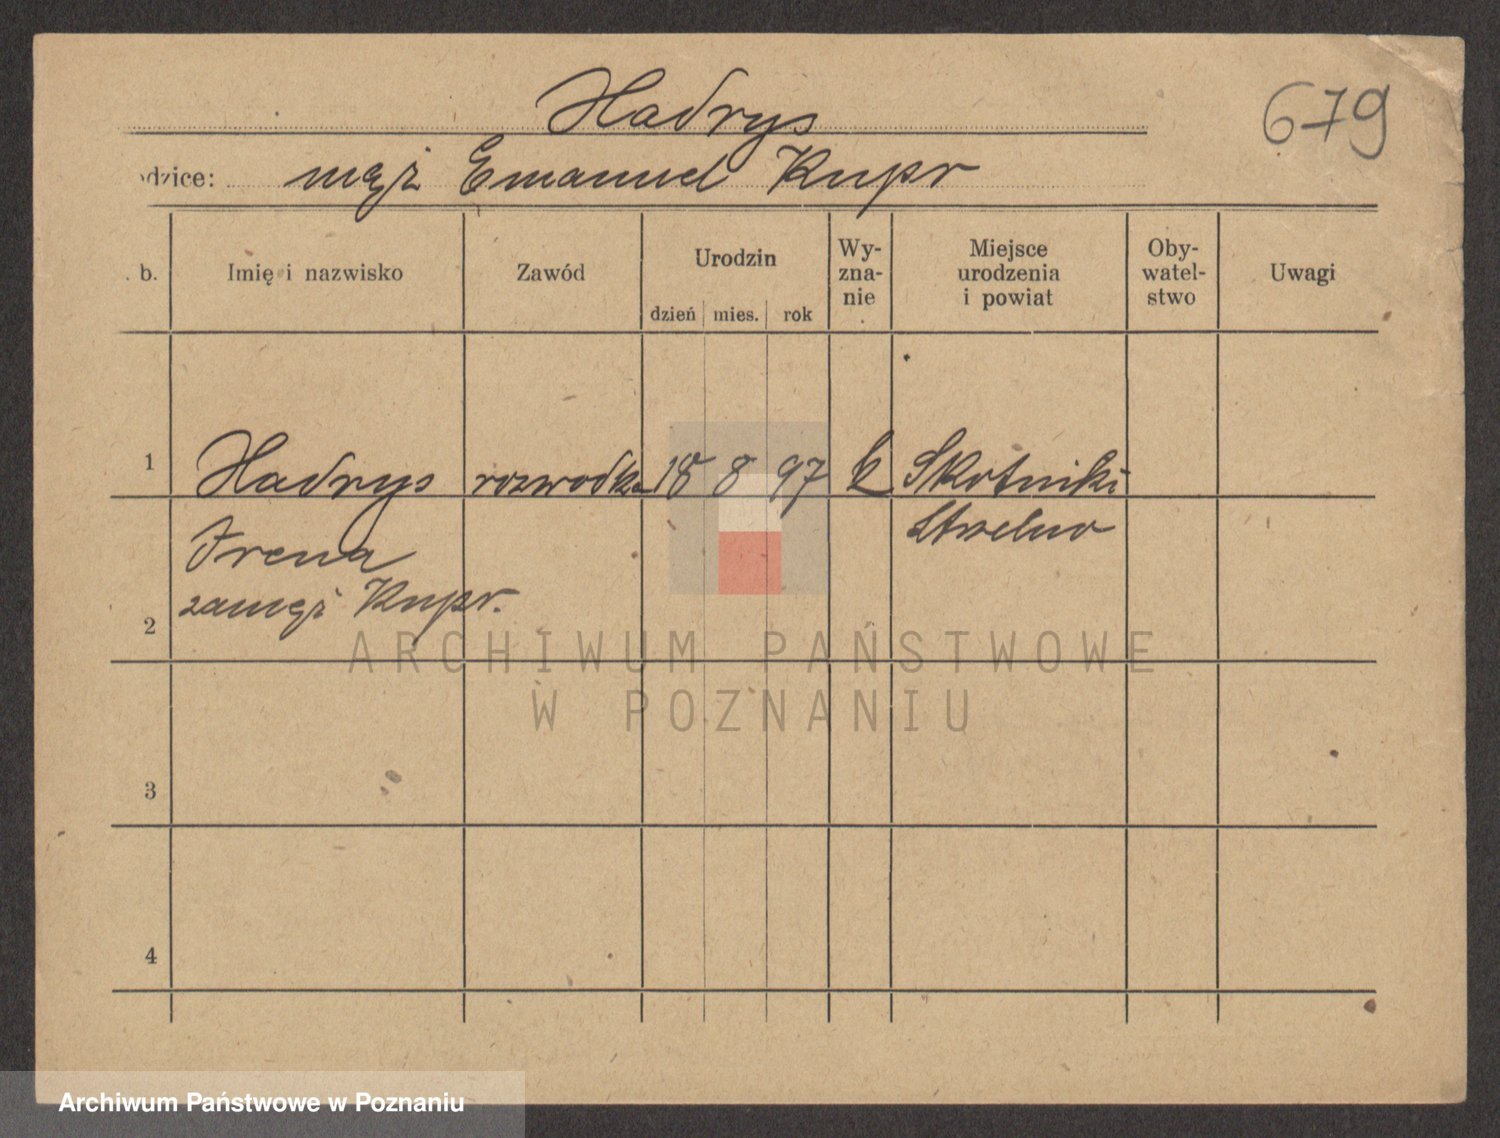 Hadrys
679
odzice: mąż Emanuel Knpr
. b. Imię i nazwisko Zawód Urodzin dzień mies. rok Wy-zna-nie Miejsce urodzenia i powiat Oby-watel-stwo Uwagi
1 Hadrys rozwodka 18 8 97 k Skotniki
Irena Strzelno
zamęż Knpr.
2
3
4
ARCHIWUM PAŃSTWOWE
W POZNANIU
Archiwum Państwowe w Poznaniu